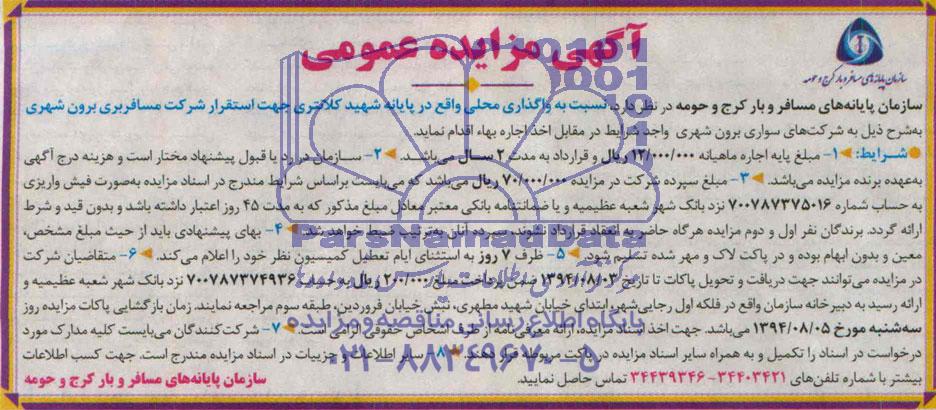 آگهی مزایده عمومی
سازمان پایانه‌های مسافر و بار کرج و حومه
سازمان پایانه‌های مسافر و بار کرج و حومه در نظر دارد، نسبت به واگذاری محلی واقع در پایانه شهید کلانتری جهت استقرار شرکت مسافربری برون شهری
به‌شرح ذیل به شرکت‌های سواری برون شهری واجد شرایط در مقابل اخذ اجاره بهاء اقدام نماید.
شرایط: ۱- مبلغ پایه اجاره ماهیانه ۱۲/۰۰۰/۰۰۰ ریال و قرارداد به مدت ۲ سال می‌باشد. ۲- سازمان در رد یا قبول پیشنهاد مختار است و هزینه درج آگهی
به‌عهده برنده مزایده می‌باشد. ۳- مبلغ سپرده شرکت در مزایده ۷۰/۰۰۰/۰۰۰ ریال می‌باشد که می‌بایست براساس شرایط مندرج در اسناد مزایده به‌صورت فیش واریزی
به حساب شماره ۷۰۰۷۸۷۳۷۵۰۱۶ نزد بانک شهر شعبه عظیمیه و یا ضمانتنامه بانکی معتبر معادل مبلغ مذکور که به مدت ۴۵ روز اعتبار داشته باشد و بدون قید و شرط
ارائه گردد. برندگان نفر اول و دوم مزایده هرگاه حاضر به انعقاد قرارداد نشوند، سپرده آنان به‌ترتیب ضبط خواهد شد. ۴- بهای پیشنهادی باید از حیث مبلغ مشخص،
معین و بدون ابهام بوده و در پاکت لاک و مهر شده تسلیم شود. ۵- ظرف ۷ روز به استثنای ایام تعطیل کمیسیون نظر خود را اعلام می‌کند. ۶- متقاضیان شرکت
در مزایده می‌توانند جهت دریافت و تحویل پاکات تا تاریخ ۱۳۹۴/۰۸/۰۳ ضمن پرداخت مبلغ ۲۰۰/۰۰۰ ریال به حساب ۷۰۰۷۸۷۳۷۴۹۳۶ نزد بانک شهر شعبه عظیمیه و
ارائه رسید به دبیرخانه سازمان واقع در فلکه اول رجایی‌شهر، ابتدای خیابان شهید مطهری، نبش خیابان فروردین، طبقه سوم مراجعه نمایند. زمان بازگشایی پاکات مزایده روز
سه‌شنبه مورخ ۱۳۹۴/۰۸/۰۵ می‌باشد. جهت اخذ اسناد مزایده، ارائه معرفی‌نامه از طرف اشخاص حقوقی الزامی است. ۷- شرکت‌کنندگان می‌بایست کلیه مدارک مورد
درخواست در اسناد را تکمیل و به همراه سایر اسناد مزایده در پاکت مربوطه قرار دهند. ۸- سایر اطلاعات و جزییات در اسناد مزایده مندرج است. جهت کسب اطلاعات
بیشتر با شماره تلفن‌های ۳۴۴۰۳۴۲۱-۳۴۴۳۹۳۴۶ تماس حاصل نمایید.
سازمان پایانه‌های مسافر و بار کرج و حومه
ParsNamadData
پایگاه اطلاع رسانی مناقصه و مزایده
۰۲۱-۸۸۳۴۹۶۷۰-۵